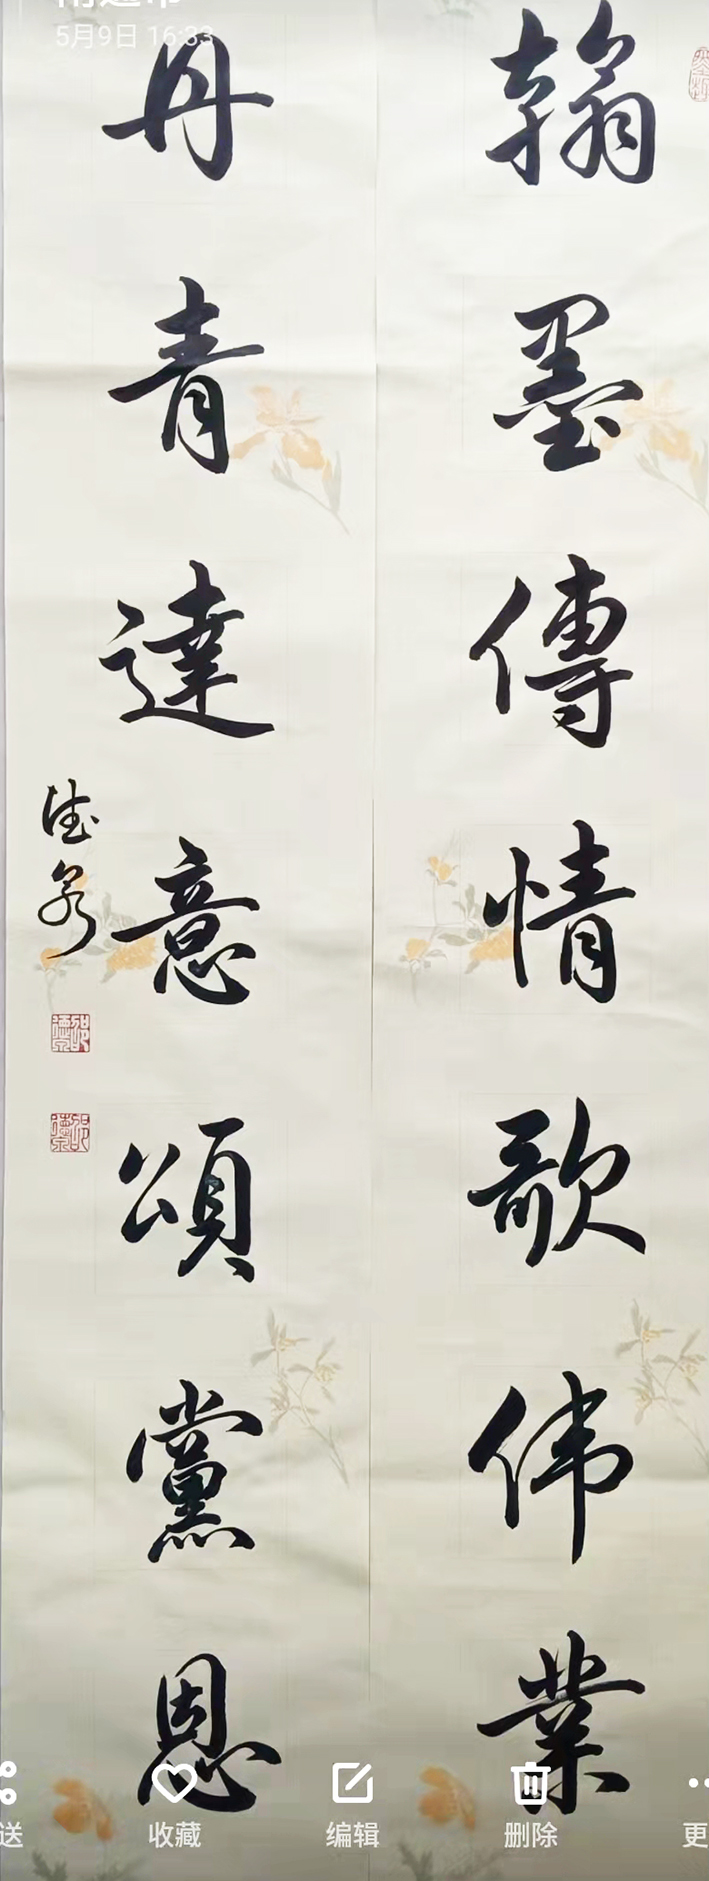 5月9日 16:33
翰墨傳情歌伟業
丹青達意頌黨恩
德泉
收藏
编辑
删除